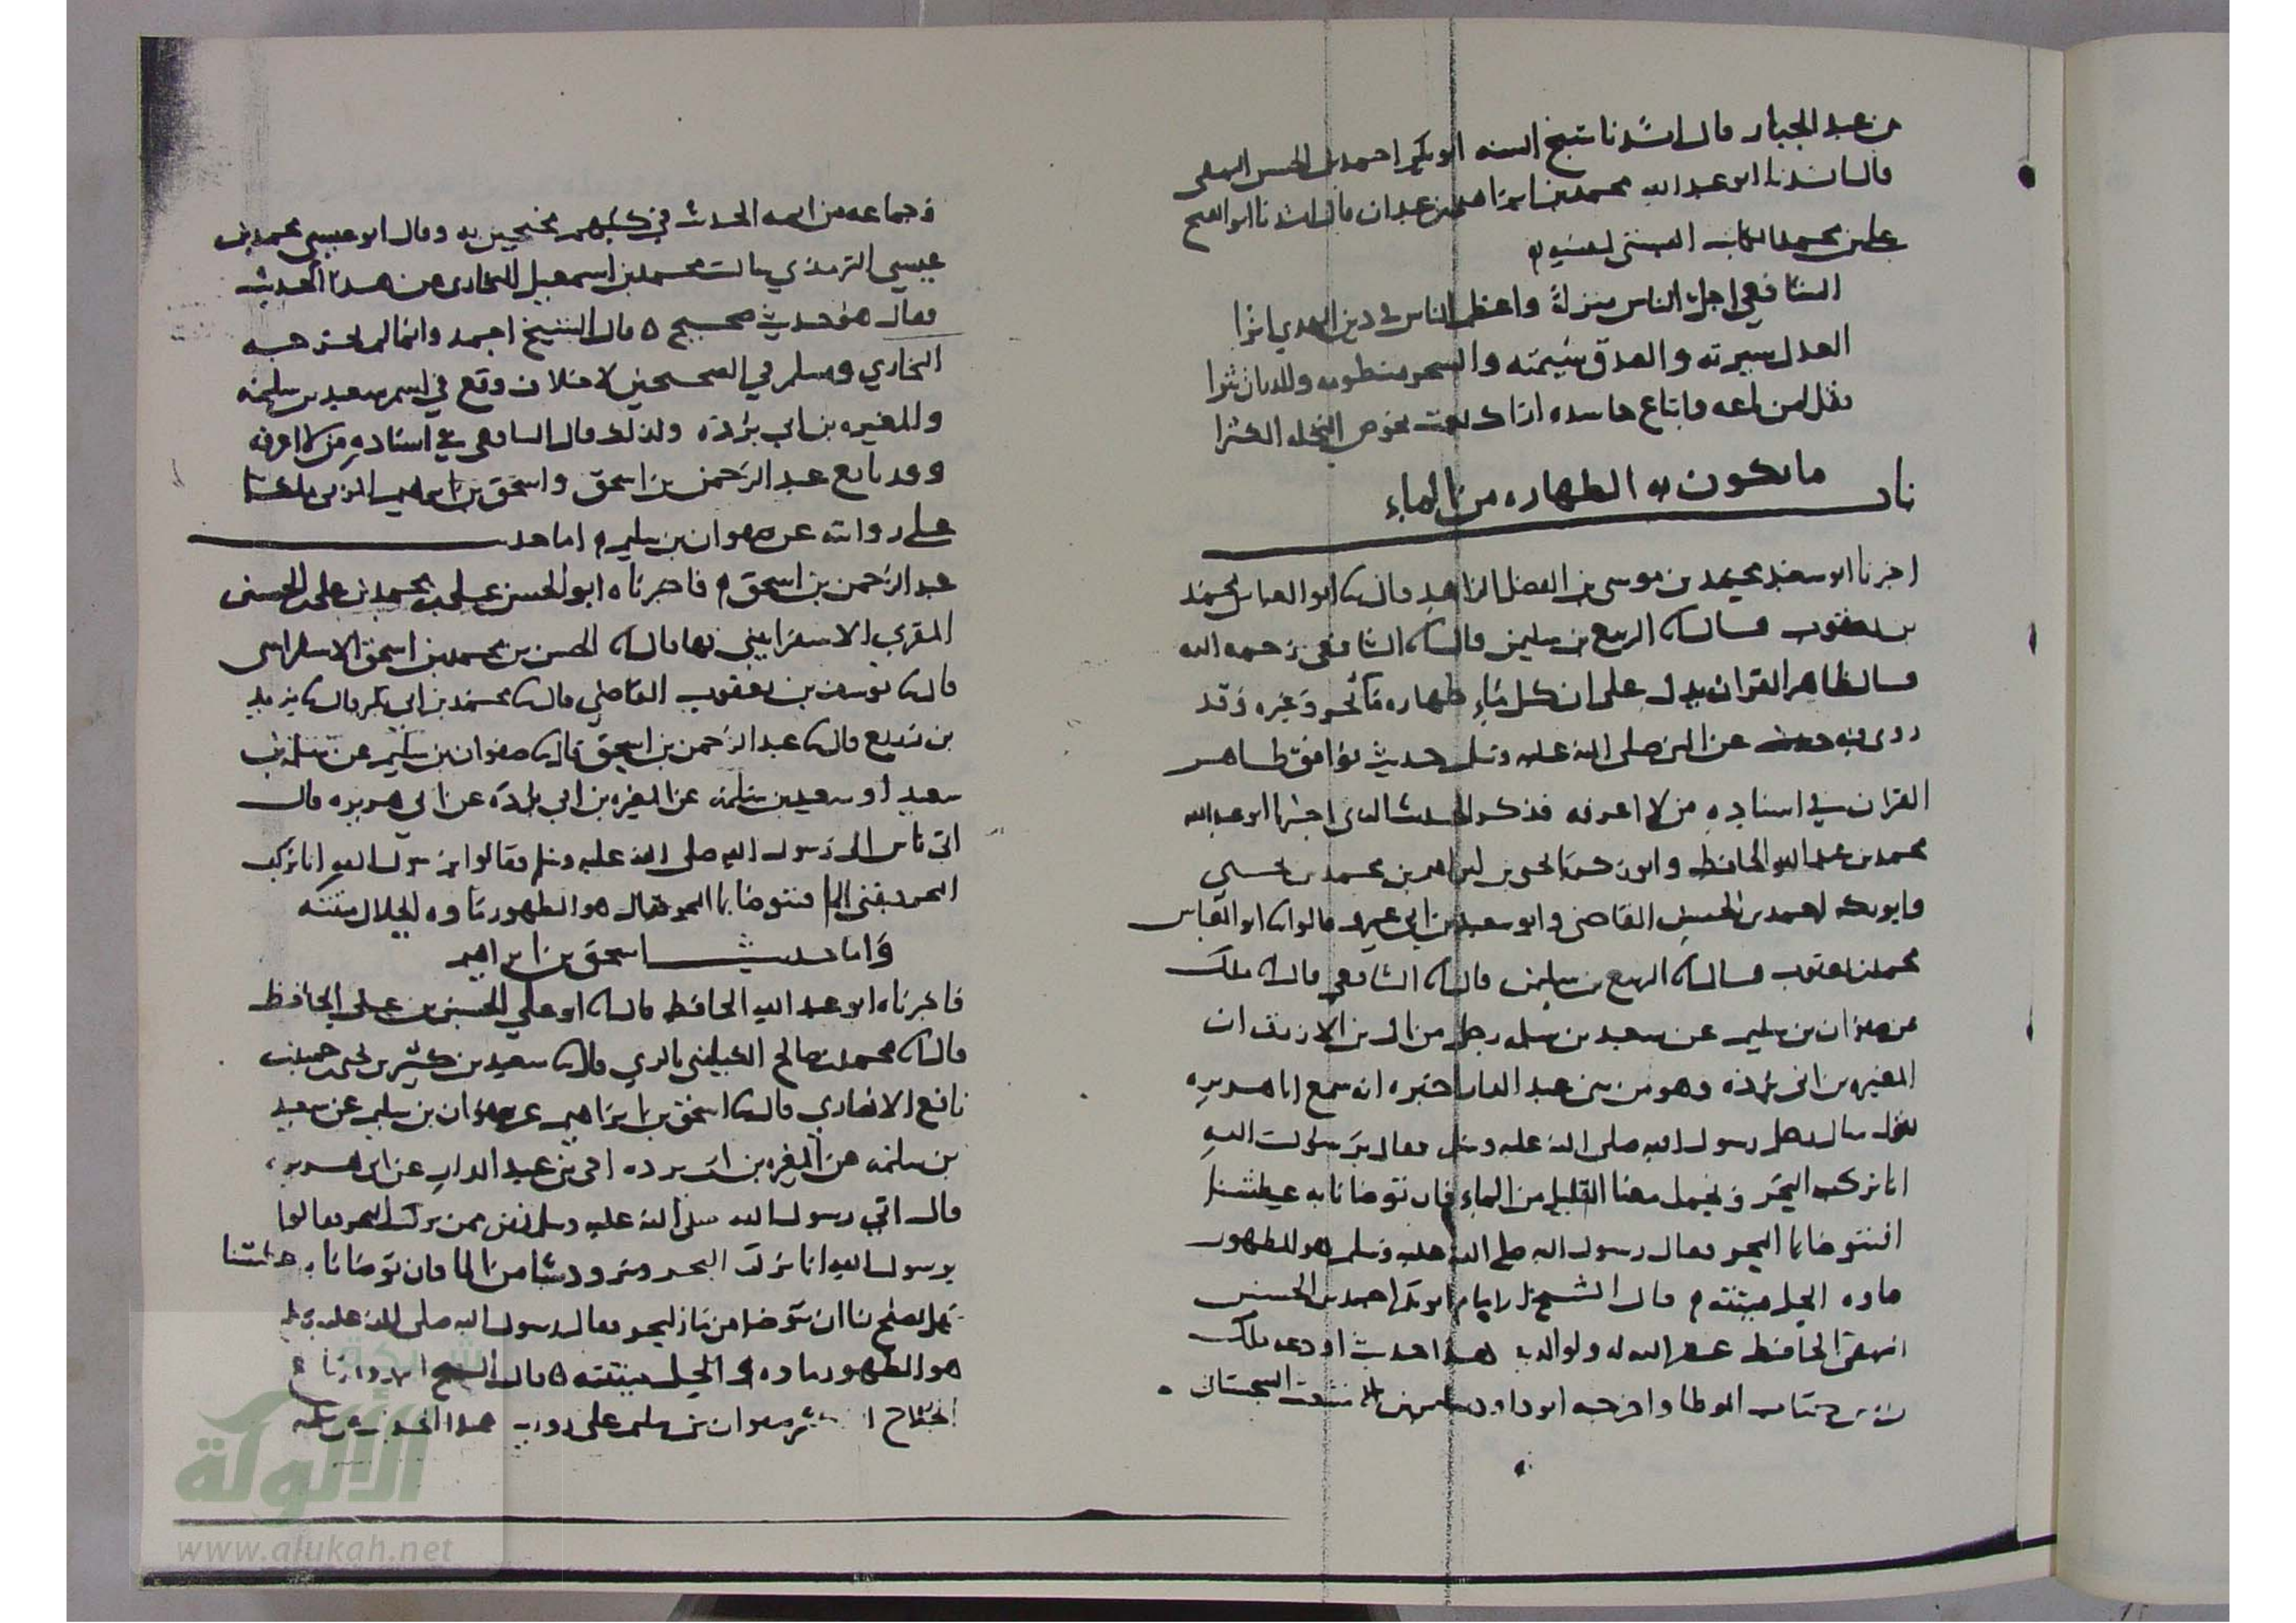 بن عبد الجبار قال انشدنا شيخ السنه ابو بكر احمد بن الحسين البيهقي
قال انشدنا ابو عبد الله محمد بن ابراهيم بن عبدان قال انشدنا ابو الفتح
علي بن محمد الكاتب البستي لنفسه
الشافعي اجل الناس منزلة واعظم الناس في دين الهدى اثرا
العدل سيرته والصدق شيمته والسحر منطقه وللدر ان نثرا
باب ما تكون به الطهاره من الماء
اخبرنا ابو سعيد محمد بن موسى بن الفضل الزاهد قال ثنا ابو العباس محمد
بن يعقوب قال انا الربيع بن سليمن قال انا الشافعي رحمه الله
قال ظاهر القران يدل على ان كل ماء طهاره ماء بحر وغيره وقد
روي فيه حديث عن النبي صلى الله عليه وسلم حديث يوافق ظاهر
القران في اسناده من لا اعرفه فذكر الحديث الذي اخبرنا ابو عبد الله
محمد بن عبد الله الحافظ وابو زكريا يحيى بن ابراهيم بن محمد بن يحيى
وابو بكر احمد بن الحسين القاضي وابو سعيد بن ابي عمرو قالوا ثنا ابو العباس
محمد بن يعقوب قال انا الربيع بن سليمن قال انا الشافعي قال انا ملك
عن صفوان بن سليم عن سعيد بن سلمه رجل من ال بن الازرق ان
المغيره بن ابي برده وهو من بني عبد الدار اخبره انه سمع ابا هريره
يقول سال رجل رسول الله صلى الله عليه وسلم فقال يرسول الله
انا نركب البحر ونحمل معنا القليل من الماء فان توضانا به عطشنا
افنتوضا بماء البحر فقال رسول الله صلى الله عليه وسلم هو الطهور
ماوه الحل ميتته قال الشيخ الامام ابو بكر احمد بن الحسين
البيهقي الحافظ غفر الله له ولوالديه هذا حديث اودعه ملك
بن انس كتاب الموطا واخرجه ابو داود سليمن بن الاشعث السجستاني
وجماعه من ايمه الحديث في كتبهم محتجين به وقال ابو عيسى محمد بن
عيسى الترمذي سالت محمد بن اسمعيل البخاري عن هذا الحديث
فقال هو حديث صحيح قال الشيخ احمد وانما لم يخرجه
البخاري ومسلم في الصحيحين لاختلاف وقع في اسم سعيد بن سلمه
والمغيره بن ابي برده ولذلك قال الشافعي في اسناده من لا اعرفه
وقد تابع عبد الرحمن بن اسحق واسحق بن ابراهيم المزني ملكا
على روايته عن صفوان بن سليم اما حديث
عبد الرحمن بن اسحق فاخبرناه ابو الحسن علي بن محمد بن علي الحسني
المقري الاسفرايني بها قال انا الحسن بن محمد بن اسحق الاسفرايني
قال ثنا يوسف بن يعقوب القاضي قال ثنا محمد بن ابي بكر قال ثنا يزيد
بن زريع قال ثنا عبد الرحمن بن اسحق قال ثنا صفوان بن سليم عن سلمه بن
سعيد او سعيد بن سلمه عن المغيره بن ابي برده عن ابي هريره قال
اتى ناس الى رسول الله صلى الله عليه وسلم فقالوا يرسول الله انا نركب
البحر فيفنى الماء افنتوضا بماء البحر فقال هو الطهور ماوه الحلال ميتته
واما حديث اسحق بن ابراهيم
فاخبرناه ابو عبد الله الحافظ قال انا ابو علي الحسين بن علي الحافظ
قال ثنا محمد بن صالح الكيليني بالري قال ثنا سعيد بن كثير بن يحيى بن حميد بن
نافع الانصاري قال ثنا اسحق بن ابراهيم عن صفوان بن سليم عن سعيد
بن سلمه عن المغيره بن ابي برده اخي بني عبد الدار عن ابي هريره
قال اتى رسول الله صلى الله عليه وسلم نفر ممن يركب البحر فقالوا
يرسول الله انا نركب البحر ونتزود شيا من الماء فان توضانا به عطشنا
فهل يصلح لنا ان نتوضا من ماء البحر فقال رسول الله صلى الله عليه وسلم
هو الطهور ماوه الحل ميتته قال الشيخ
الجلاح صفوان بن سليم على روايه هذا الحديث عن سعيد بن سلمه
شبكة
الألوكة
www.alukah.net